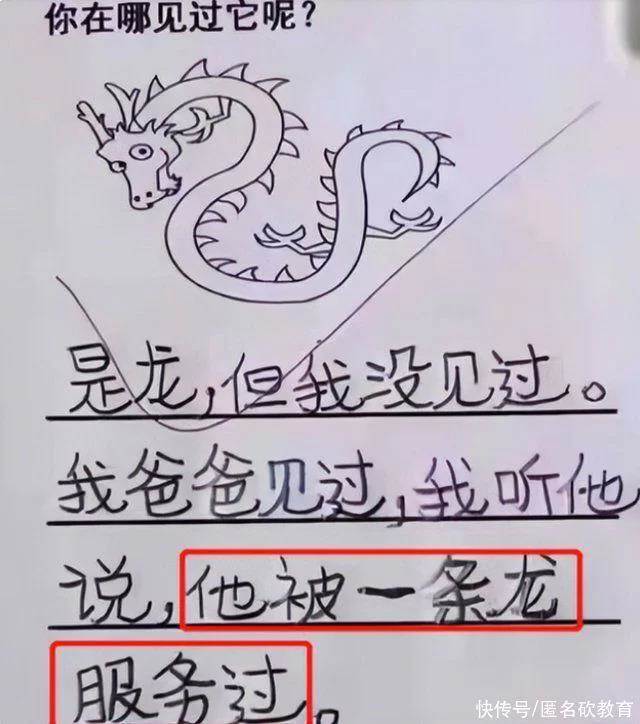 你在哪见过它呢？
是龙，但我没见过。
我爸爸见过，我听他
说，他被一条龙
服务过。
快传号/匿名砍教育